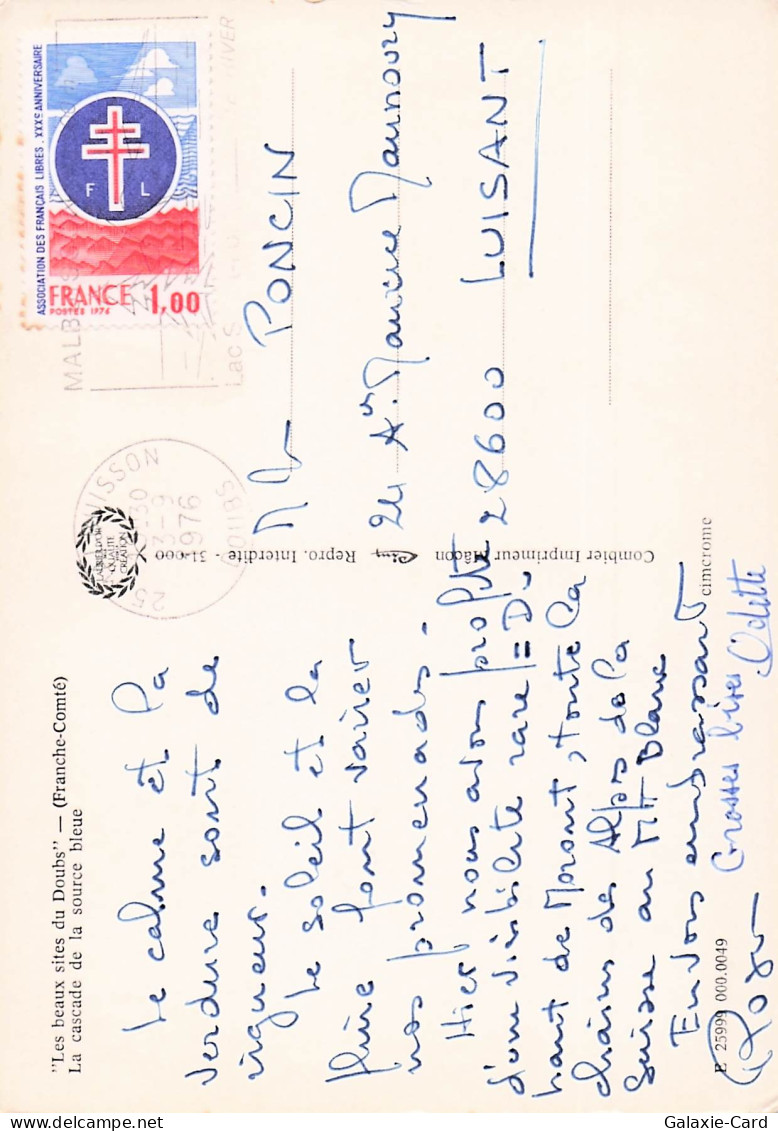 "Les beaux sites du Doubs" — (Franche-Comté)
La cascade de la source bleue
Le calme et la
verdure sont de
vigueur.
Le soleil et la
pluie font varier
nos promenades.
Hier nous avons profité
d'une visibilité rare = Du
haut de Moront, toute la
chaîne des Alpes de la
Suisse au Mt Blanc
En vous embrassant
Roger Grosses bises Odette
E 25999 000.0049
LAURIER D'OR
DE LA
QUALITÉ
CRÉATION
Combier Imprimeur Mâcon
Repro. Interdite - 31-000
cimcrome
ASSOCIATION DES FRANÇAIS LIBRES . XXXe ANNIVERSAIRE
F L
FRANCE 1,00
POSTES 1976
3-9
1976
25 DOUBS
PONCIN
24 Av. Maurice Maunoury
28600 LUISANT
Galaxie-Card